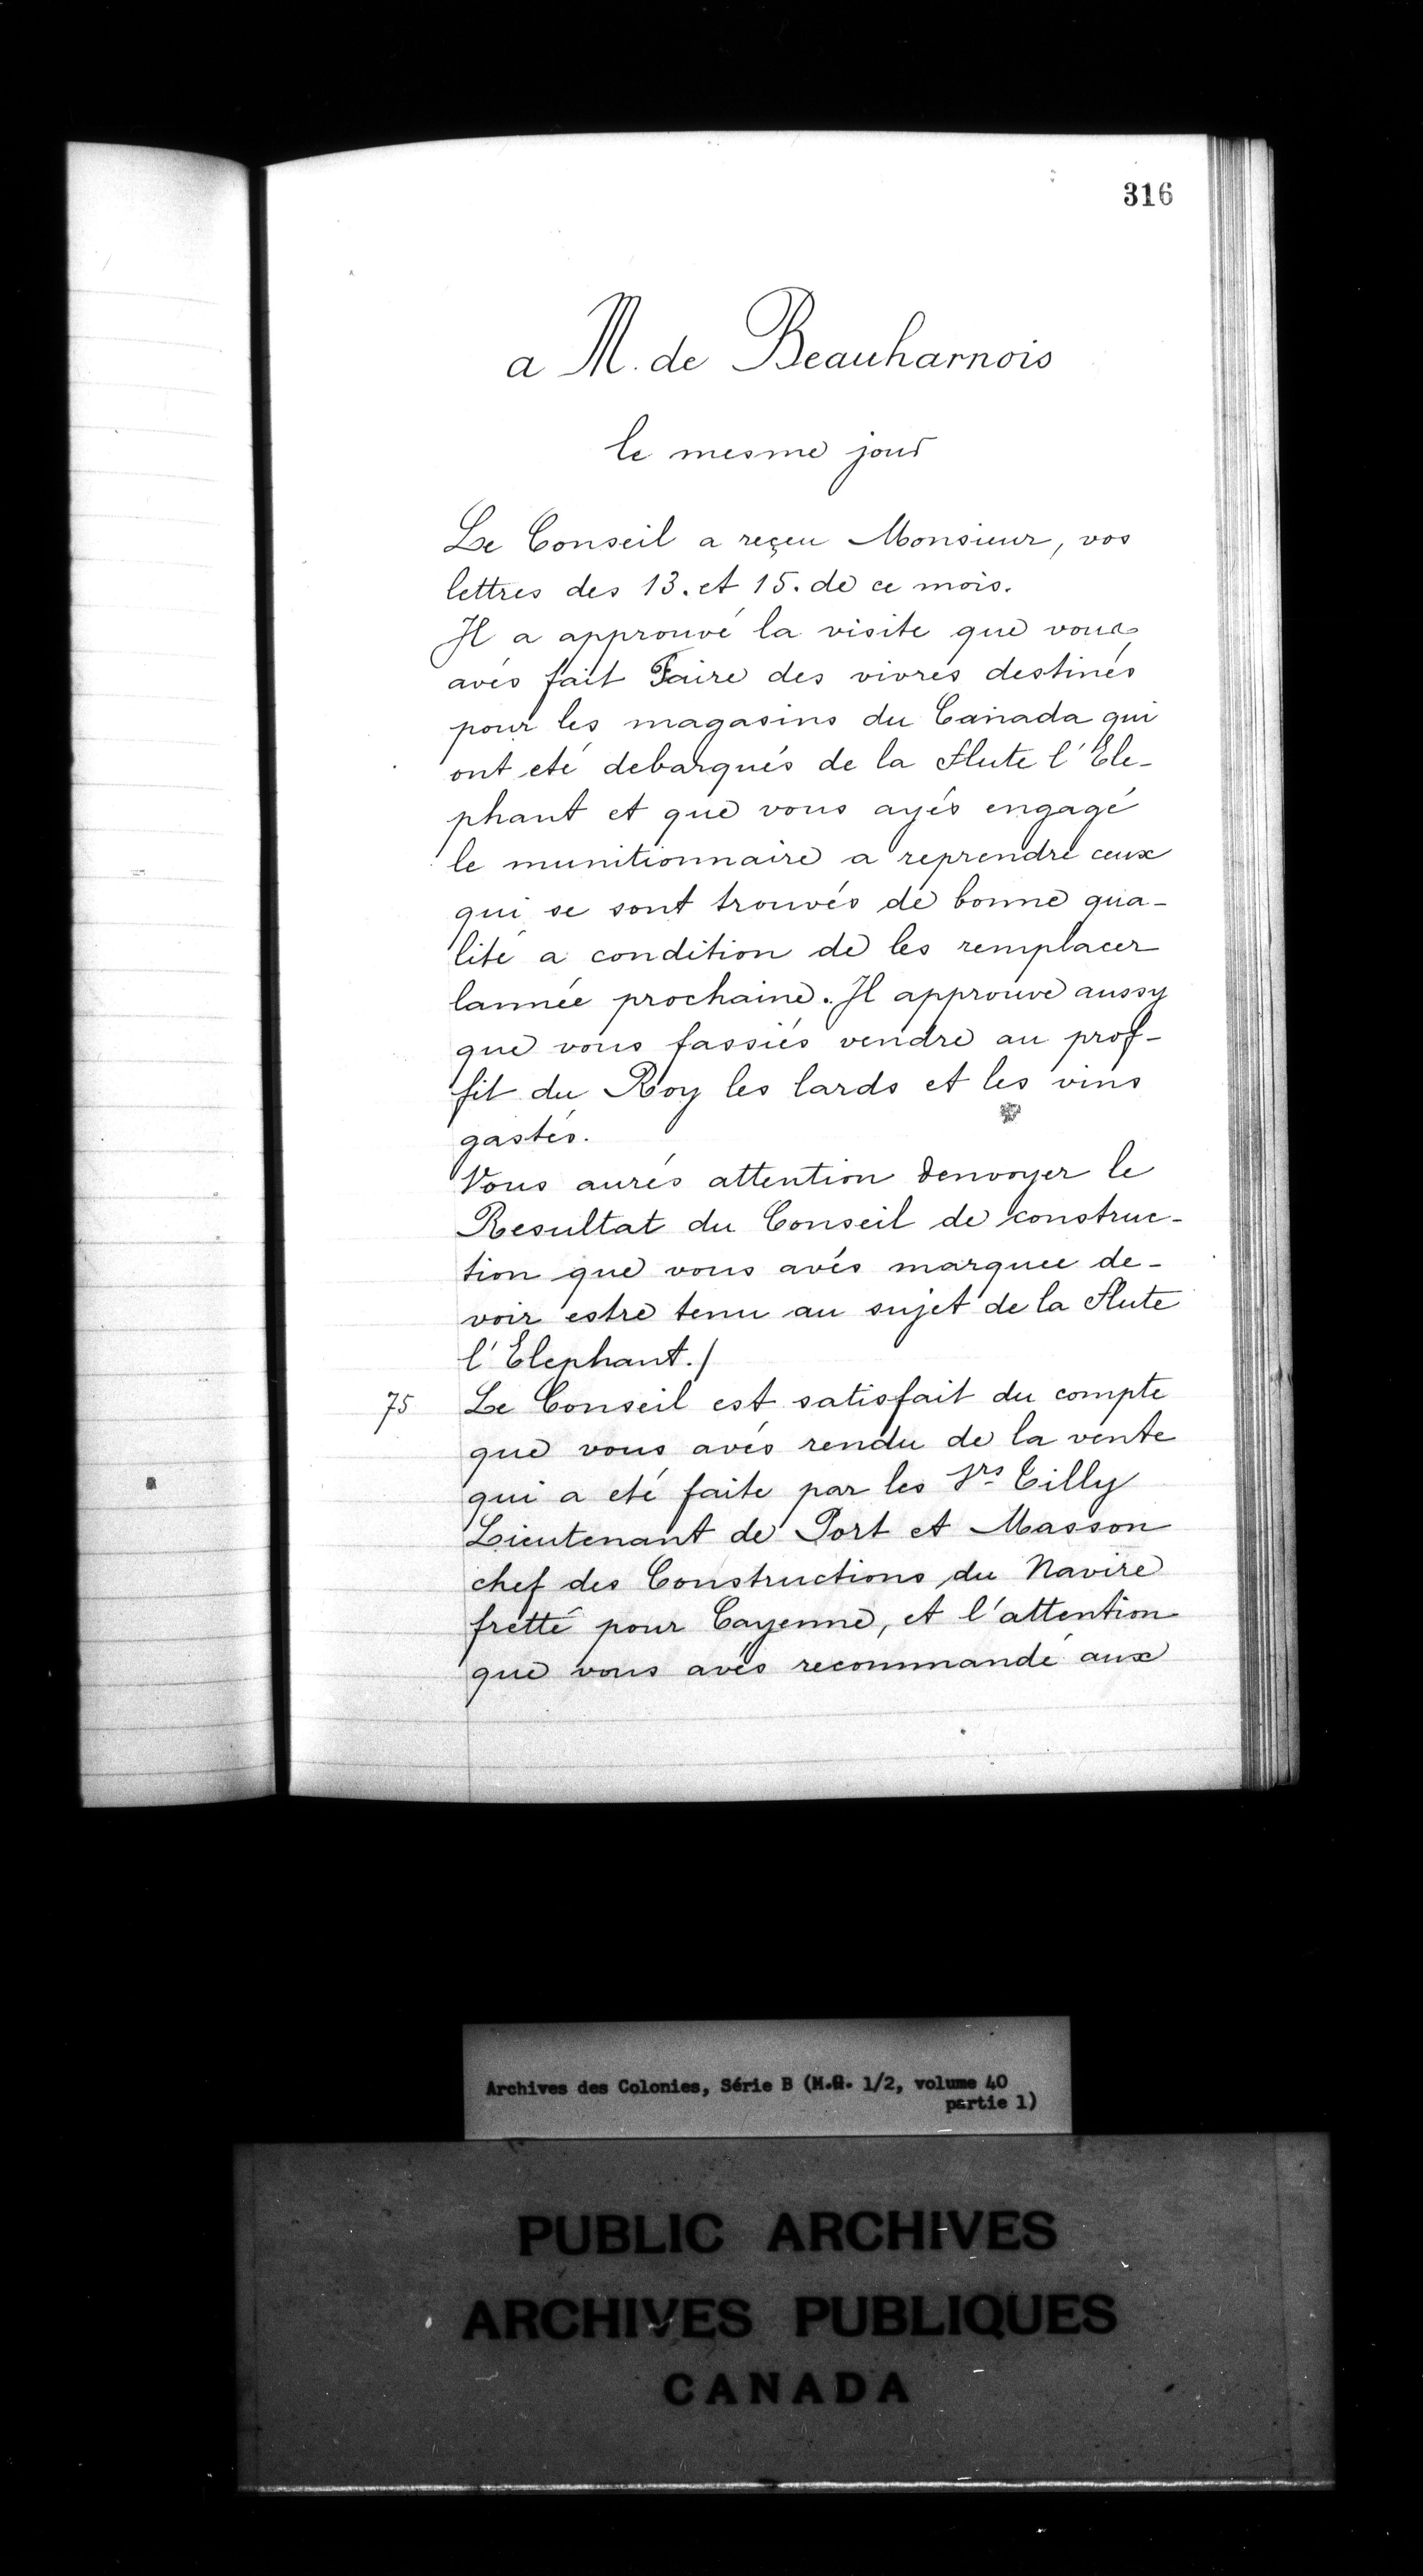 316
a M. de Beauharnois
le mesme jour
Le Conseil a reçeu Monsieur, vos
lettres des 13. et 15. de ce mois.
Il a approuvé la visite que vous
avés fait Faire des vivres destinés
pour les magasins du Canada qui
ont eté debarqués de la flute l'Ele-
phant et que vous ayés engagé
le munitionnaire a reprendre ceux
qui se sont trouvés de bonne qua-
lité a condition de les remplacer
lannée prochaine. Il approuve aussy
que vous fassiés vendre au prof-
fit du Roy les lards et les vins
gastés.
Vous aurés attention denvoyer le
Resultat du Conseil de construc-
tion que vous avés marquee de-
voir estre tenu au sujet de la flute
l'Elephant./
75 Le Conseil est satisfait du compte
que vous avés rendu de la vente
qui a eté faite par les Srs Tilly
Lieutenant de Port et Masson
chef des Constructions du Navire
fretté pour Cayenne, et l'attention
que vous avés recommandé aux
Archives des Colonies, Série B (M.G. 1/2, volume 40
partie 1)
PUBLIC ARCHIVES
ARCHIVES PUBLIQUES
CANADA